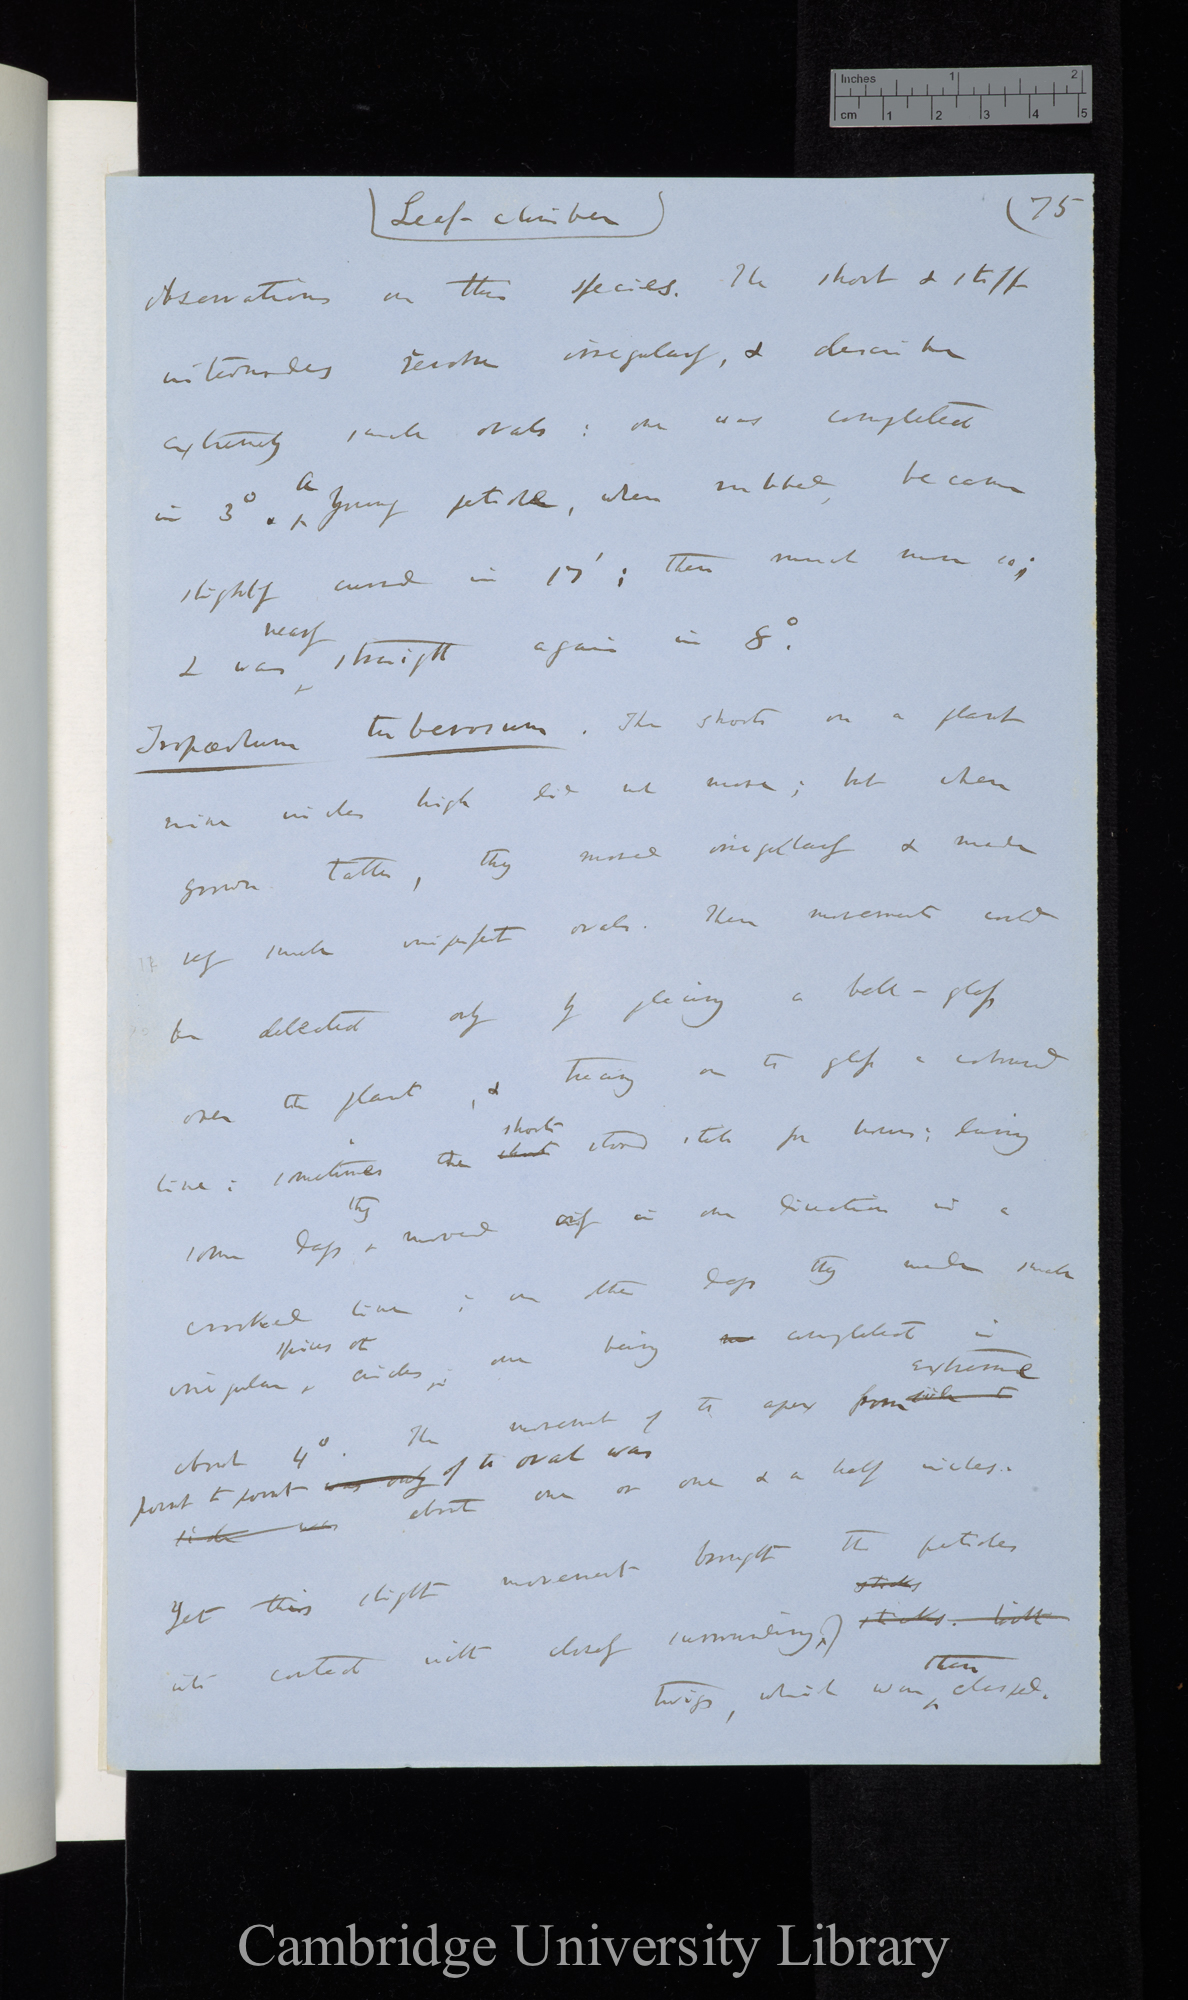 Inches 1 2
cm 1 2 3 4 5
Leaf-climber
(75
observations on this species. The short & stiff
internodes revolve irregularly, & describe
extremely small ovals: one was completed
in 3°. A young petiole, when rubbed, became
slightly curved in 17'; then much more so;
nearly
& was straight again in 8°.
Tropæolum tuberosum. The shoots on a plant
nine inches high did not move; but when
grown taller, they moved irregularly & made
very small imperfect ovals. These movements could
be detected only by placing a bell-glass
over the plant, & tracing on the glass a coloured
shoots
line: sometimes the stood still for hours; during
they
some days moved only in one direction in a
crooked line; on other days they made small
spires or
irregular circles; one being completed in
extreme
about 4°. The movement of the apex from
point to point was only of the oval was
side was about one or one & a half inches.
Yet this slight movement brought the petioles
sticks
into contact with closely surrounding
then
twigs, which were clasped.
Cambridge University Library